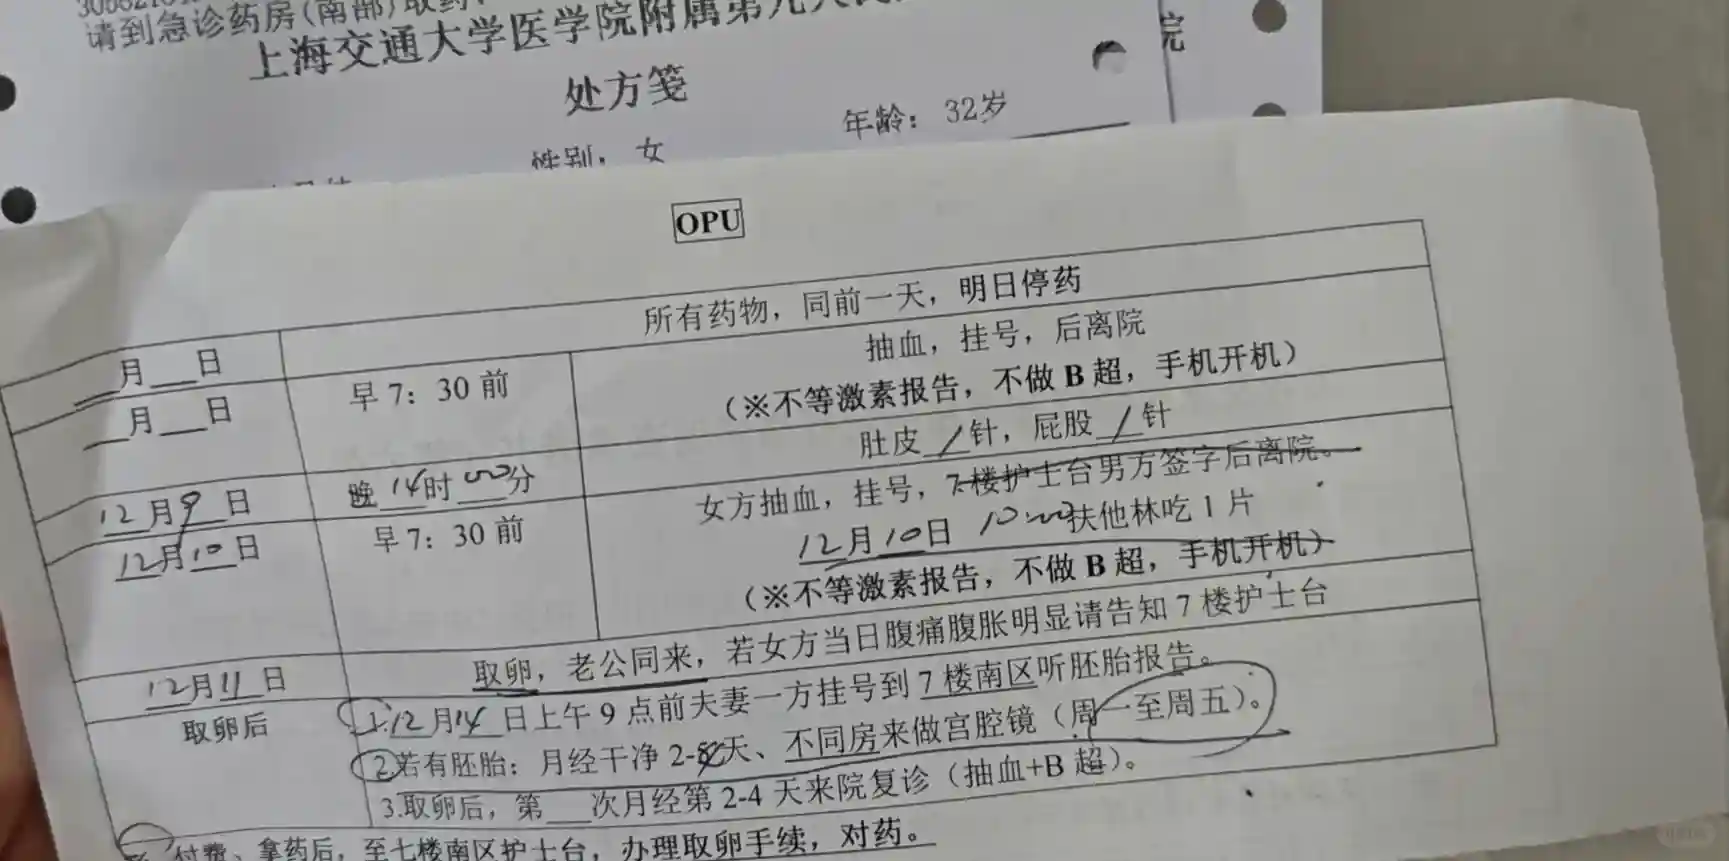 请到急诊药房(南部)取药
上海交通大学医学院附属第九人民
院
处方笺
性别：女
年龄：32岁
OPU
__月__日
所有药物，同前一天，明日停药
__月__日
早7：30前
抽血，挂号，后离院
（※不等激素报告，不做B超，手机开机）
12月9日
晚14时00分
肚皮/针，屁股/针
12月10日
早7：30前
女方抽血，挂号，7楼护士台男方签字后离院。
12月10日 10:00扶他林吃1片
（※不等激素报告，不做B超，手机开机）
12月11日
取卵，老公同来，若女方当日腹痛腹胀明显请告知7楼护士台
取卵后
1.12月14日上午9点前夫妻一方挂号到7楼南区听胚胎报告。
2.若有胚胎：月经干净2-天、不同房来做宫腔镜（周一至周五）。
3.取卵后，第__次月经第2-4天来院复诊（抽血+B超）。
付费、拿药后，至七楼南区护士台，办理取卵手续，对药。